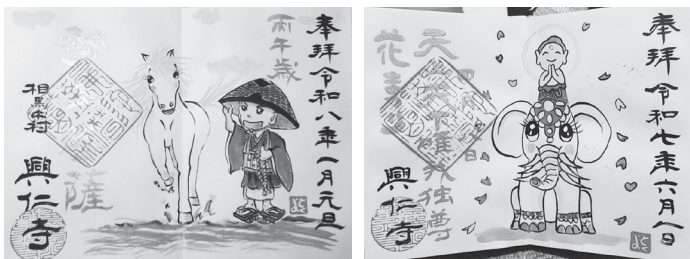 奉拝令和八年一月元旦
丙午歳
薩
相馬中村
興仁寺
奉拝令和七年六月一日
天上天下唯我独尊
興仁寺